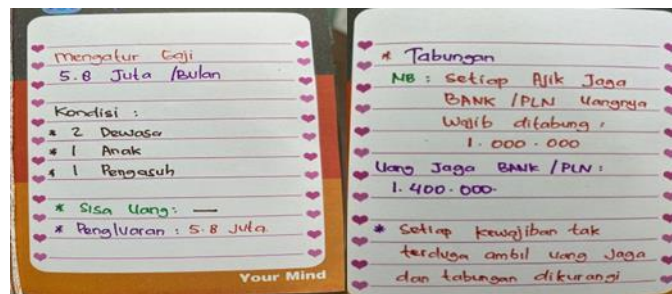 Mengatur Gaji
5.8 Juta /Bulan
Kondisi :
* 2 Dewasa
* 1 Anak
* 1 Pengasuh
* Sisa Uang: —
* Pengluaran : 5.8 Juta.
Your Mind
* Tabungan
NB : Setiap Ajik Jaga
BANK / PLN Uangnya
Wajib ditabung :
1.000.000
Uang Jaga BANK / PLN :
1.400.000.
* Setiap kewajiban tak
terduga ambil uang Jaga
dan tabungan dikurangi